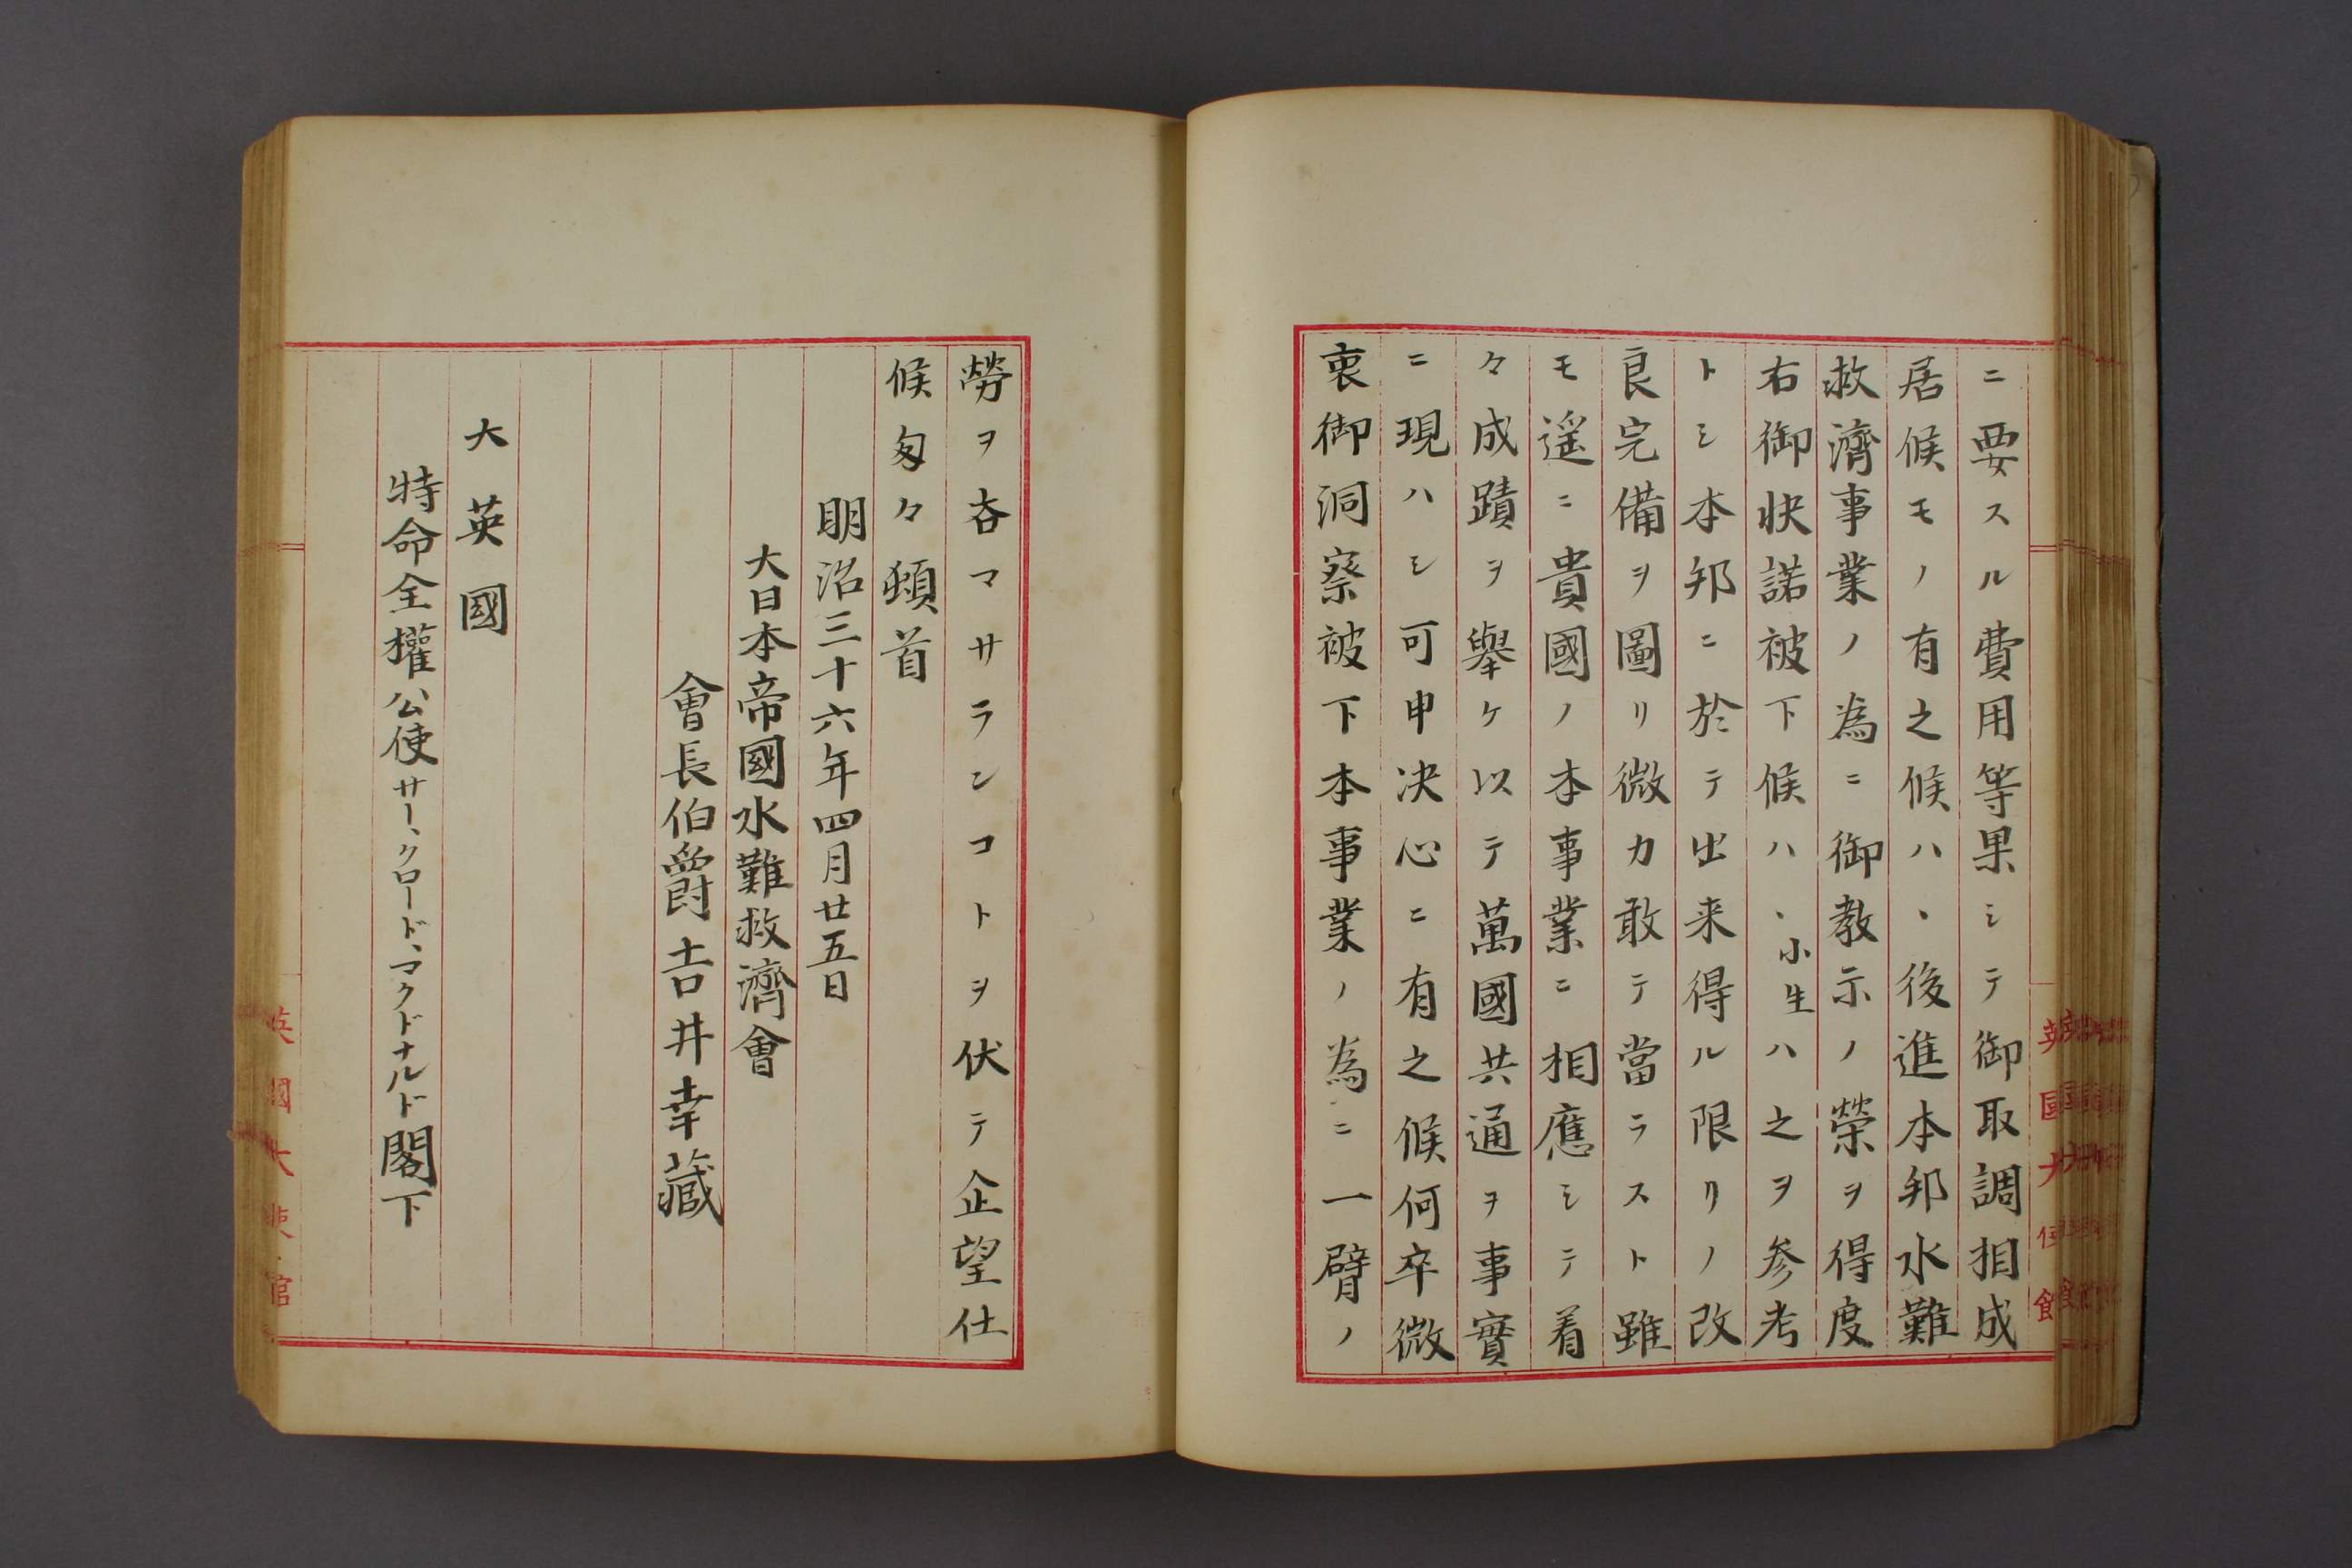 ニ要スル費用等果シテ御取調相成
居候モノ有之候ハヽ後進本邦水難
救濟事業ノ為ニ御教示ノ榮ヲ得度
右御快諾被下候ハヽ小生ハ之ヲ参考
トシ本邦ニ於テ出来得ル限リノ改
良完備ヲ圖リ微カ敢テ當ラスト雖
モ遥ニ貴國ノ本事業ニ相應シテ着
々成蹟ヲ舉ケ以テ萬國共通ヲ事實
ニ現ハシ可申決心ニ有之候何卒微
衷御洞察被下本事業ノ為ニ一臂ノ
勞ヲ吝マサランコトヲ伏テ企望仕
候匆々頓首
明治三十六年四月廿五日
大日本帝國水難救濟會
會長伯爵吉井幸藏
大英國
特命全權公使サー、クロード、マクドナルド閣下
英國大使館
英國大使館